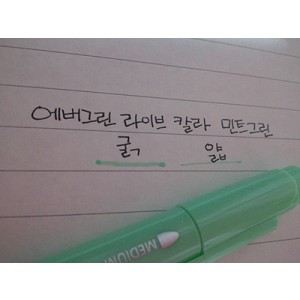 에버그린 라이브 칼라 민트그린
굵 얇
MEDIUM